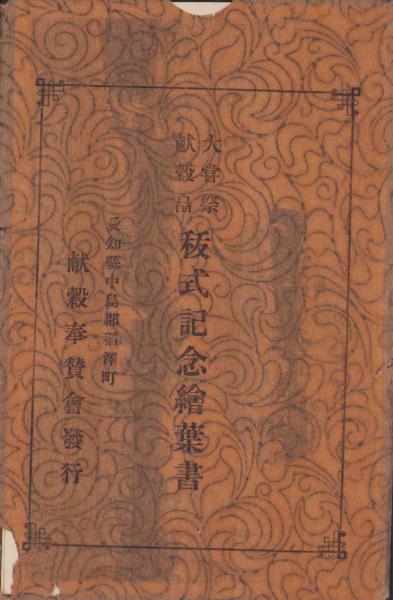 大嘗祭
献穀品
祓式記念繪葉書
愛知縣中島郡稻澤町
献穀奉賛會發行